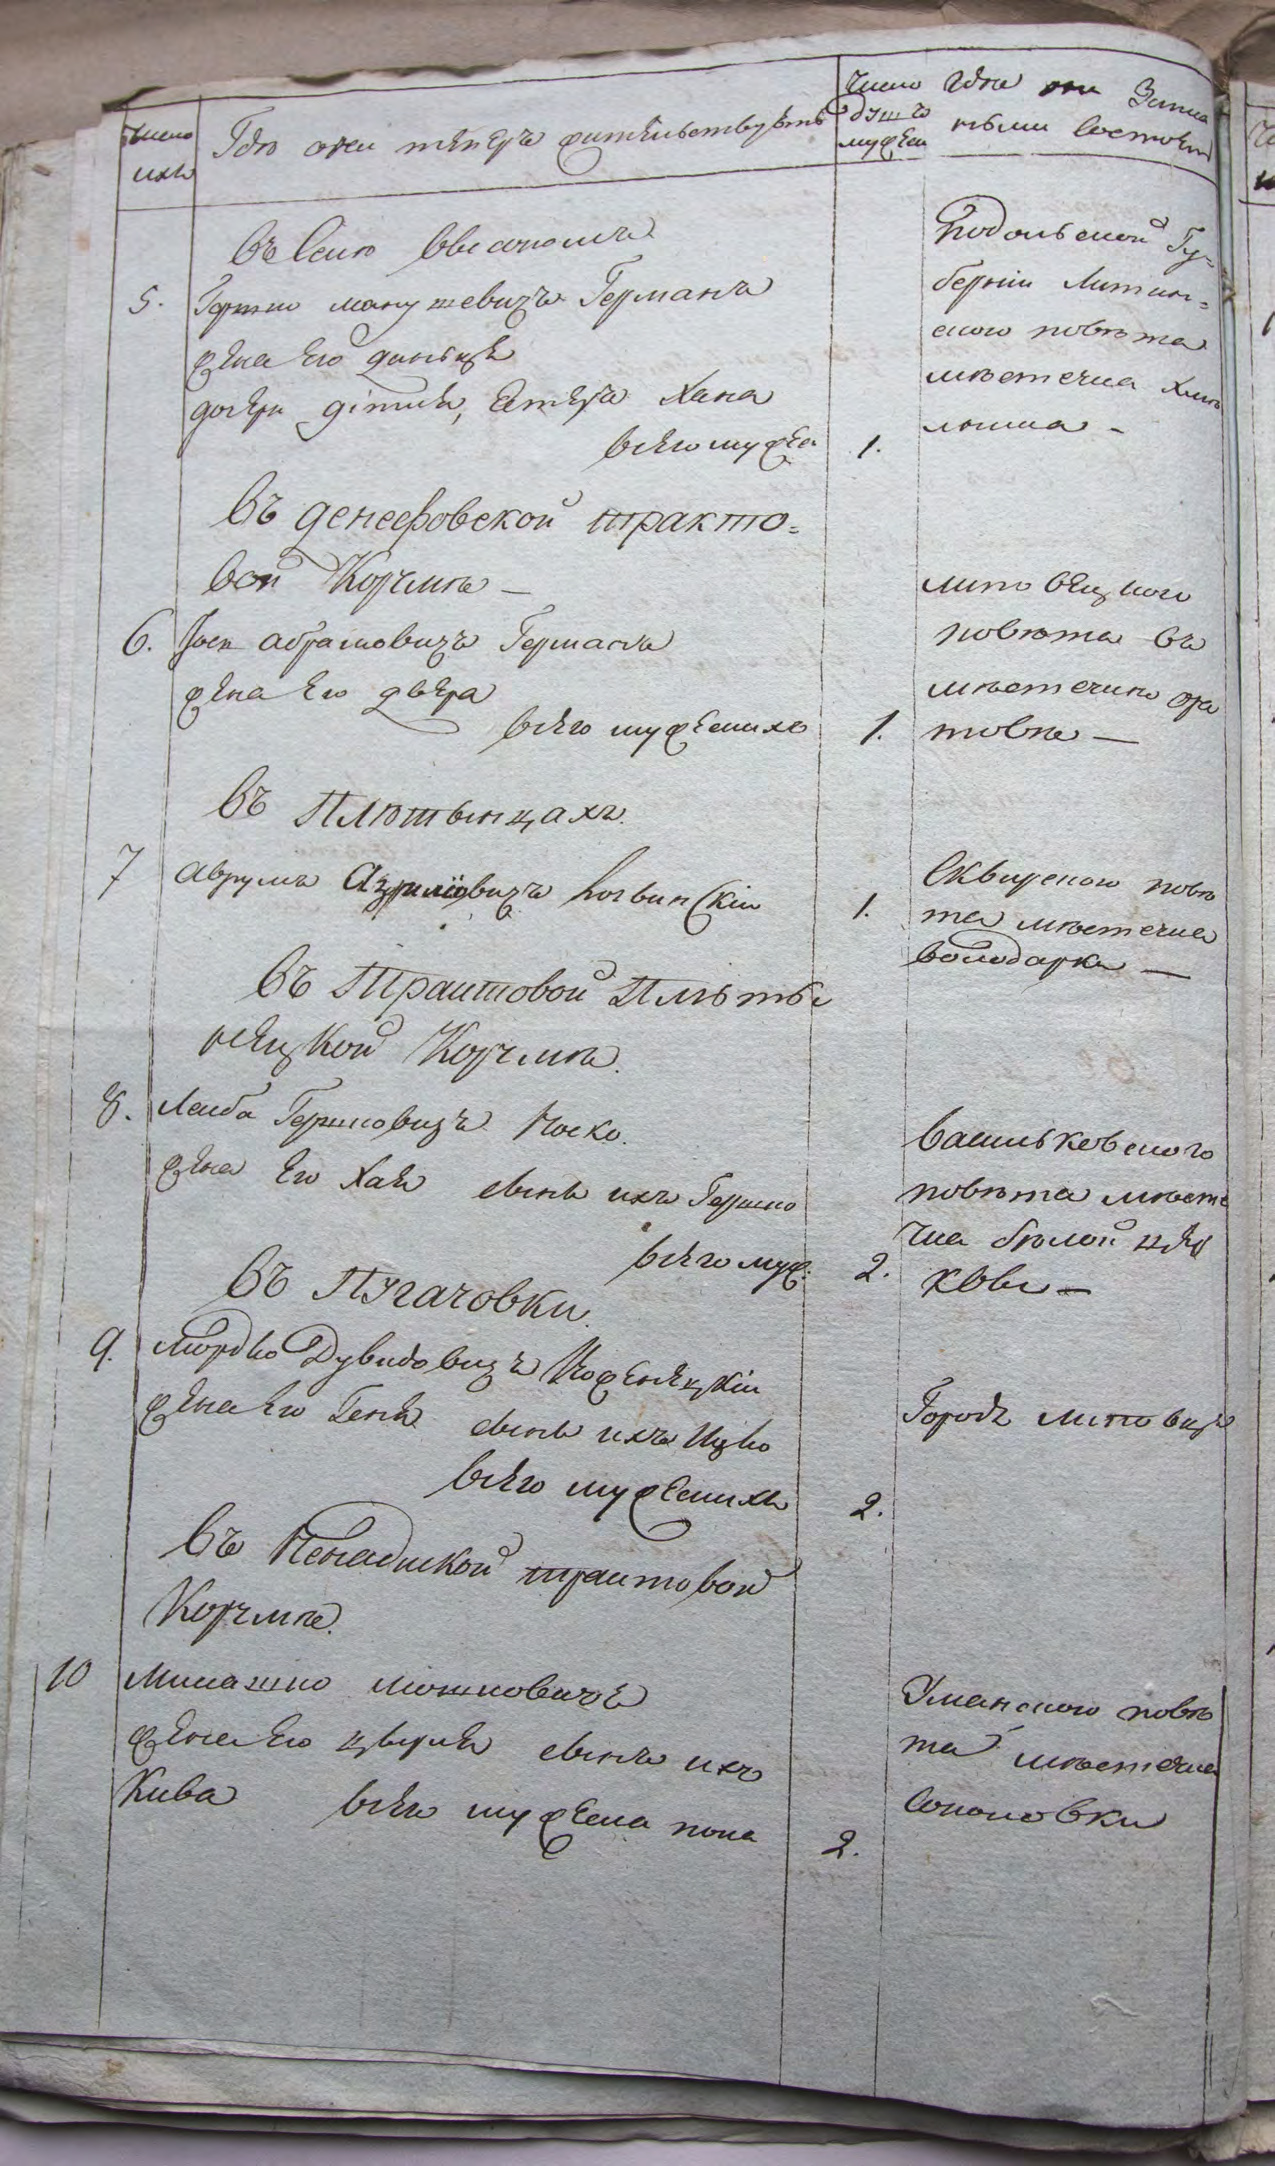 число
ихъ
Где они теперь жительствуютъ
число
душъ
мужск
где они Записа
ными состоятъ
Въ Селе
5. Гершко манушевичъ Германъ
жена Его
дочери Естеръ Хана
всего мужеска 1.
Подольской Гу-
берніи Литин-
ского повѣта
мѣстечка Хмѣ
лника -
Въ денеефовской тракто-
вой Корчмѣ -
6. Іось абрамовичъ Германъ
жена Его двера
всего мужескихъ 1.
липовецкого
повѣта въ
мѣстечкѣ ора
товѣ -
Въ Плютынцахъ
7 аврумъ Азрилiовичъ Логвинскiй 1.
Сквирского повѣ
та мѣстечка
володарки -
Въ Трактовой Плѣты
нецкой Корчмѣ.
8. Лейба Гершковичъ Носко.
жена Его Хая сынъ ихъ Гершко
всего муж: 2.
васильковского
повѣта мѣсте
чка бѣлой цер
квы -
Въ Пугачовки.
9. Мордко Дувидовичъ Коженецкiй
жена Его Геня сынъ ихъ Ицко
всего мужескихъ 2.
Городъ липовецъ
Въ Ненадиской трактовой
Корчмѣ.
10 мошковичъ
жена Его цвирля сынъ ихъ
Кива всего мужеска пола 2.
Уманского повѣ
та мѣстечка
Соколовки